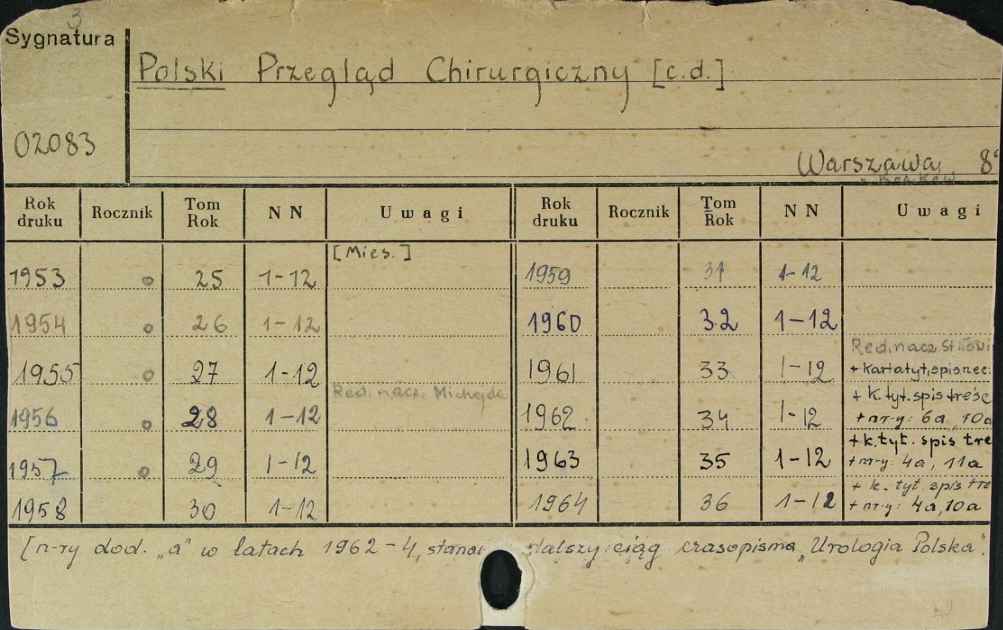 3
Sygnatura
Polski Przegląd Chirurgiczny [c.d.]
02083
Warszawa 8°
Rok druku Rocznik Tom Rok NN Uwagi Rok druku Rocznik Tom Rok NN Uwagi
[Mies.]
1953 o 25 1-12 1959 31 1-12
1954 o 26 1-12 1960 32 1-12
Red. nacz.
1955 o 27 1-12 1961 33 1-12 + karta tyt,
Red. nacz. Michejda + k. tyt. spis treśc
1956 o 28 1-12 1962 34 1-12 + nr-y: 6a, 10a
+ k. tyt. spis tre
1957 o 29 1-12 1963 35 1-12 + nr-y: 4a, 11a
+ k. tyt. spis tre
1958 30 1-12 1964 36 1-12 + nr-y: 4a, 10a
[n-ry dod. „a" w latach 1962-4, stano dalszy ciąg czasopisma „Urologia Polska".